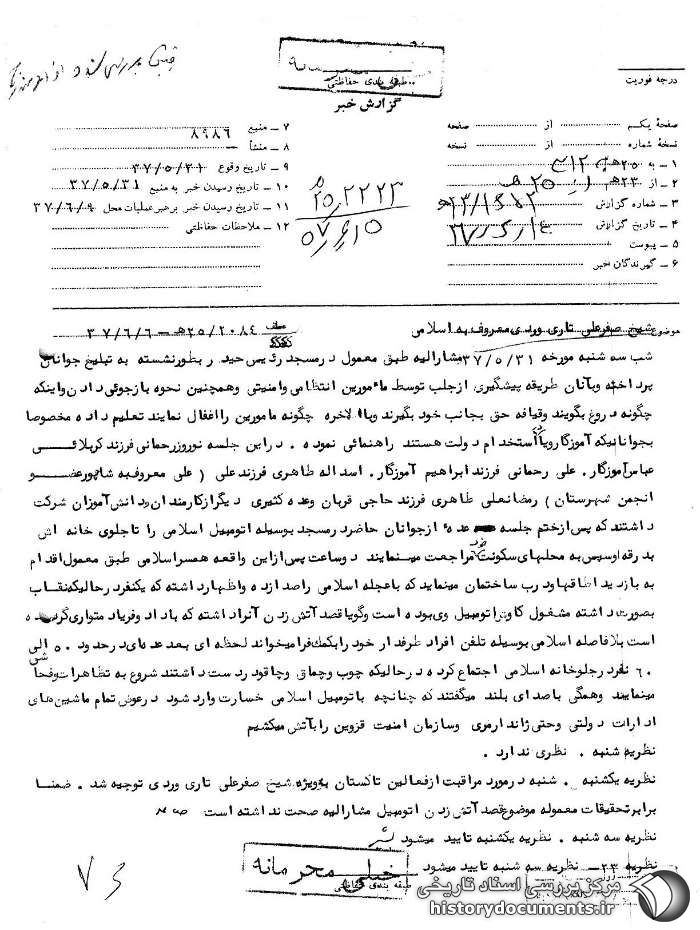 خیلی محرمانه
طبقه بندی حفاظتی
درجه فوریت
گزارش خبر
صفحهٔ یکم از صفحه
نسخهٔ شماره از نسخه
۱ - به
۲ - از
۳ - شماره گزارش
۴ - تاریخ گزارش
۵ - پیوست
۶ - گیرندگان خبر
۷ - منبع ۸۹۸۶
۸ - منشأ
۹ - تاریخ وقوع ۳۷/۵/۳۱
۱۰ - تاریخ رسیدن خبر به منبع ۳۷/۵/۳۱
۱۱ - تاریخ رسیدن خبر برهبر عملیات محل ۳۷/۶/۹
۱۲ - ملاحظات حفاظتی
موضوع شیخ صفرعلی تاری وردی معروف به اسلامی ۲۰۸۴/۲۵ھ - ۳۷/۶/۶
شب سه شنبه مورخه ۳۷/۵/۳۱ مشارالیه طبق معمول در مسجد رئیس حیدر بطور نشسته به تبلیغ جوانان
پرداخته وبآنان طریقه پیشگیری از جلب توسط مامورین انتظامی وامنیتی وهمچنین نحوه بازجوئی دادن واینکه
چگونه دروغ بگویند وقیافه حق بجانب خود بگیرند وبالاخره چگونه مامورین را اغفال نمایند تعلیم داده مخصوصا
بجوانانیکه آموزگار ویا استخدام دولت هستند راهنمائی نموده . در این جلسه نوروز رحمانی فرزند کربلائی
عباس آموزگار. علی رحمانی فرزند ابراهیم آموزگار. اسداله طاهری فرزند علی ( علی معروف به شاپور عضو
انجمن شهرستان ) رمضانعلی طاهری فرزند حاجی قربان وعده کثیری دیگر از کارمندان ودانش آموزان شرکت
داشتند که پس از ختم جلسه عده از جوانان حاضر در مسجد بوسیله اتومبیل اسلامی را تا جلوی خانه اش
بدرقه وسپس به محلهای سکونت خود مراجعت مینمایند دو ساعت پس از این واقعه همسر اسلامی طبق معمول اقدام
به بازدید اطاقها ودرب ساختمان مینماید که با عجله اسلامی را صدا زده واظهار داشته که یکنفر در حالیکه نقاب
بصورت داشته مشغول کاوتر اتومبیل وی بوده است وگویا قصد آتش زدن آنرا داشته که با داد وفریاد متواری گردیده
است بلافاصله اسلامی بوسیله تلفن افراد طرفدار خود را بکمک فرا میخواند لحظه ای بعد عده ای در حدود ۵۰ الی
۶۰ نفر در جلو خانه اسلامی اجتماع کرده در حالیکه چوب وچماق وچاقو در دست داشتند شروع به تظاهرات وفحاشی
مینمایند وهمگی با صدای بلند میگفتند که چنانچه باتومبیل اسلامی خسارت وارد شود در عوض تمام ماشین های
ادارات دولتی وحتی ژاندارمری وسازمان امنیت قزوین را بآتش میکشیم
نظریه شنبه . نظری ندارد .
نظریه یکشنبه . شنبه در مورد مراقبت از فعالین تاکستان به ویژه شیخ صفرعلی تاری وردی توجیه شد . ضمنا
برابر تحقیقات معموله موضوع قصد آتش زدن اتومبیل مشارالیه صحت نداشته است
نظریه سه شنبه . نظریه یکشنبه تایید میشود
نظریه ۲۳ - نظریه سه شنبه تایید میشود
خیلی محرمانه
طبقه بندی حفاظتی
مرکز بررسی اسناد تاریخی
historydocuments.ir